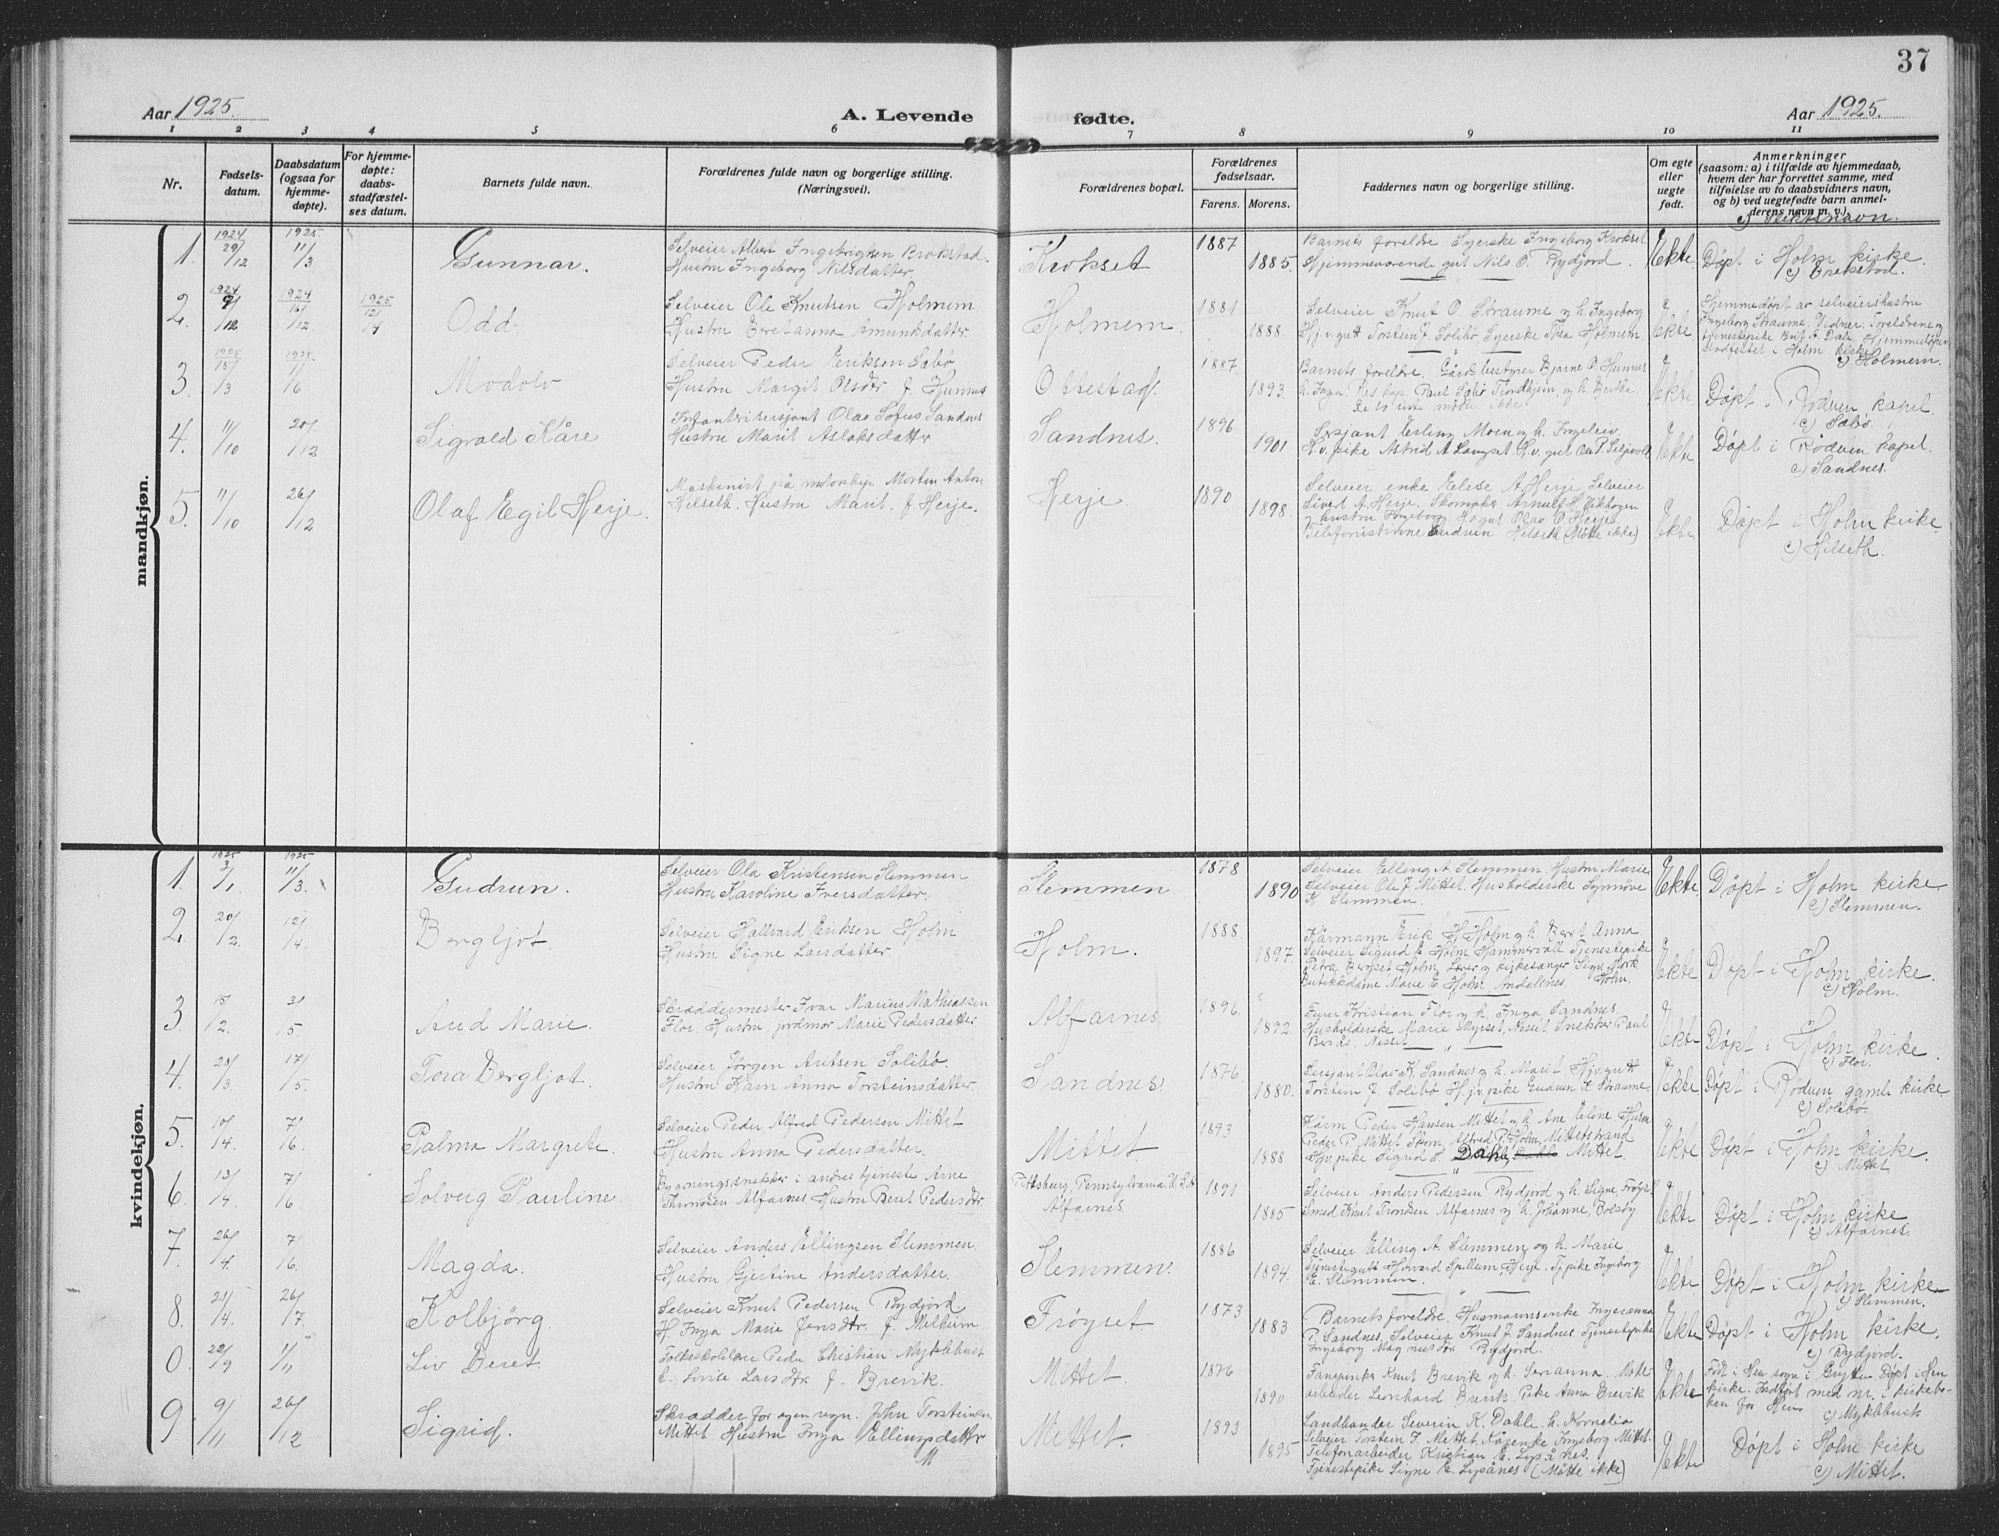 37
Aar 1925.
A. Levende
fødte.
Aar 1925.
1 2 3 4 5 6 7 8 9 10 11
Nr.
Fødsels-
datum.
Daabsdatum
(ogsaa for
hjemme-
døpte).
For hjemme-
døpte:
daabs-
stadfæstel-
ses datum.
Barnets fulde navn.
Forældrenes fulde navn og borgerlige stilling.
(Næringsvei).
Forældrenes bopæl.
Forældrenes
fødselsaar.
Farens. Morens.
Faddernes navn og borgerlige stilling.
Om egte
eller
uegte
født.
Anmerkninger
(saasom: a) i tilfælde av hjemmedaab,
hvem der har forrettet samme, med
tilføielse av to daabsvidners navn,
og b) ved uegtefødte barn anmel-
derens navn m. v.)
c) Slektsnavn.
mandkjøn.
1. 1924 29/12 1925 11/3 Gunnar.
Selveier Albert Ingebrigtsen Brokstad.
Hustru Ingeborg Nilsdatter.
Krokset 1887 1885.
Barnets foreldre. Syerske Ingeborg Krokset.
Hjemmeværende gut Nils O. Rydjord.
Ekte Døpt i Holm kirke.
2. 1924 9/12 1924 /12 1925 12/7 Odd
Selveier Ole Knutsen Holmem
Hustru Beret anna Amundsdatter.
Holmem. 1881 1888.
Selveier Knut O. Straume og h. Ingeborg
Hj.v.gutt Torstein J. Solibø Syerske Thea Holmem
Ekte
Hjemmedøpt av selveierhustru
Ingeborg Straume. Vidner: Foreldrene og
tjenestepike A. Dale. Hjemmedåpen
stadfestet i Holm kirke
c) Holmem.
3. 1925 15/3 1925 1/6 Modolv
Selveier Peder Eriksen Sæbø
Hustru Margit Olsdtr f. Hunnes
Ottestad. 1887. 1893.
Barnets foreldre. Gårdsbestyrer Bjarne O. Hunnes
h. Inga. Paul Sæbø Trondhjem, og h. Bertha
De to siste møtte ikke.
Ekte Døpt i Rødven kapel.
c) Sæbø.
4. 11/10 20/12 Sigvald Kåre
Infanterisersjant Olav Sofus Sandnes
Hustru Marit Aslaksdattr
Sandnes. 1896 1901
Sersjant Erling Moen og h. Ingeleiv.
H.v.pike Astrid A. Langset. H.v.gut Ola P.
Ekte Døpt i Rødven kapel.
c) Sandnes.
5. 11/10 26/12 Olaf Egil Herje.
Maskinist på motorskøyte Morten Anton
Hilseth. Hustru Marit f. Herje.
Herje 1890 1898.
Selveier enke Eelese A Herje. Selveier
Sivert A. Herje. Skomaker Arnulf H. Vikhagen
hustru Ingeborg. H.v.gut Olav O. Herje
Telefonistinne Gudrun Hilseth (Møtte ikke)
Ekte Døpt i Holm kirke.
c) Hilseth.
kvindekjøn.
1. 1925 3/1 1925 11/3. Gudrun.
Selveier Ola Kristensen Slemmen.
Hustru Karoline Iversdatter.
Slemmen 1878 1890
Selveier Elling A. Slemmen. Hustru Marie
Selveier Ole J. Mittet. Husholderske Synnøve
K. Slemmen.
Ekte Døpt i Holm kirke.
c) Slemmen.
2. 20/2. 12/4. Bergljot.
Selveier Hallvard Eriksen Holm
Hustru Signe Larsdatter.
Holm. 1888. 1897.
Kårmann Erik H. Holm og h. Beret Anna
Selveier Sigurd E. Holm Hammervoll Tjenestepike
Petra Berset, Holm, Lærer og kirkesanger Sigv. Mork
Butikkdame Marie E. Holm, Åndalsnes. Holm.
Ekte Døpt i Holm kirke.
c) Holm.
3. 15/2. 3/5. Aud Marie.
Skræddermester Ivar Marius Mathiassen
Flor. Hustru jordmor Marie Pedersdatter.
Alfarnes 1896. 1892.
Furer Kristian Flor og h. Inga Sandnes.
Husholderske Marie Myrset, Nesset. Snekker Paul
Ekte Døpt i Holm kirke.
c) Flor.
4. 28/3. 17/5. Tora Bergljot.
Selveier Jørgen Antsen Solibø
Hustru Karn Anna Torsteinsdatter.
Sandnes 1876 1880.
Sersjant Olav K. Sandnes og h. Marit. Hj.v.gutt
Torstein J. Solibø Hj.v.pike Gudrun K. Straume.
Ekte Døpt i Rødven gamle kirke
c) Solibø.
5. 10/4. 7/6. Palma Margrete
Selveier Peder Alfred Pedersen Mittet
Hustru Anna Pedersdatter.
Mittet 1893 1888
Kårm. Peder Hansen Mittet og h. Ane Eline Husm.
Peder P. Mittet Skom. Alfred P. Holm, Mittetstrand
Hj.v.pike Sigrid S. Dahle, Mittet.
Ekte Døpt i Holm kirke.
c) Mittet
6. 13/4 7/6 Solveig Pauline.
Bygningssnekker i andres tjeneste Arne
Thronsen Alfarnes Hustru Berit Pedersdtr.
Pittsburg, Pennsylvania U.S.A
Alfarnes. 1891 1885
Selveier Anders Pedersen Rydjord og h. Signe, Frøys.
Smed Knut Trondsen Alfarnes og h. Johanne, Bolsøy
Ekte Døpt i Holm kirke
c) Alfarnes.
7. 26/4. 7/6. Magda.
Selveier Anders Ellingsen Slemmen.
Hustru Gjertine Andersdatter.
Slemmen. 1886 1894.
Selveier Elling A. Slemmen, og h. Marie
Tjenergutt Håvard Spillum, Herje. Tj.pike Ingeborg
E. Slemmen.
Ekte Døpt i Holm kirke
c) Slemmen.
8. 21/4. 26/7. Kolbjörg.
Selveier Knut Pedersen Rydjord
H. Inga Marie Jensdtr. f. Melkum
Frøyset 1873 1883
Barnets foreldre. Husmannsenke Ingeranna
P. Sandnes, Selveier Knut J. Sandnes Tjenestepike
Ingeborg Magnusdtr Rydjord.
Ekte Døpt i Holm kirke.
c) Rydjord.
0. 22/9 1/11 Liv Beret
Folkeskolelærer Peder Christian Myklebust
h. Lovise Larsdtr. f. Brevik.
Mittet. 1876 1890
Fanejunker Knut Brevik og h. Serianna. Møbel-
arbeider Leonhard Brevik. Pike Anna Brevik
Ekte
Født i Hen sogn i Grytten. Døpt i Hen
kirke. Indført med nr. i kirkebo-
ken for Hen.
c) Myklebust
9 9/11 26/12 Sigrid.
Skrædder for egen regn. John Torsteinsen
Mittet Hustru Inga Ellingsdattr
Mittet. 1893 1895
Landhandler Severin K. Dahle. h. Kornelia
Selveier Torstein J. Mittet. Kårenke Ingeborg Mittet.
Telefonarbeider Kristian E. Lysånes.
Tjenestepike Signe E. Lysånes (Møtte ikke)
Ekte Døpt i Holm kirke
c) Mittet.